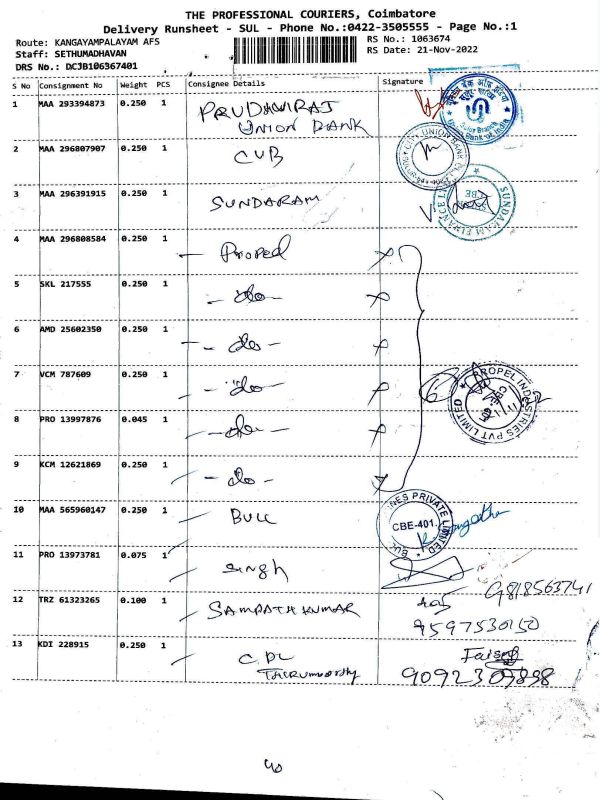 THE PROFESSIONAL COURIERS, Coimbatore
Delivery Runsheet - SUL - Phone No.:0422-3505555 - Page No.:1
Route: KANGAYAMPALAYAM AFS
RS No.: 1063674
Staff: SETHUMADHAVAN
RS Date: 21-Nov-2022
DRS No.: DCJB106367401
S No Consignment No Weight PCS Consignee Details Signature
1 MAA 293394873 0.250 1 PRUDHVIRAJ
UNION BANK
2 MAA 296807907 0.250 1 CUB
CITY UNION BANK
3 MAA 296391915 0.250 1 SUNDARAM
SUNDARAM FINANCE
4 MAA 296808584 0.250 1 - Proped
5 SKL 217555 0.250 1 - do -
6 AMD 25602350 0.250 1 - do -
7 VCM 787609 0.250 1 - do -
PROPEL INDUSTRIES PVT LIMITED
8 PRO 13997876 0.045 1 - do -
9 KCM 12621869 0.250 1 - do -
10 MAA 565960147 0.250 1 BULL
CBE-401.
11 PRO 13973781 0.075 1 Singh
9818563741
12 TRZ 61323265 0.100 1 SAMPATH KUMAR
9597530150
13 KDI 228915 0.250 1 CDL
THIRUMOORTHY